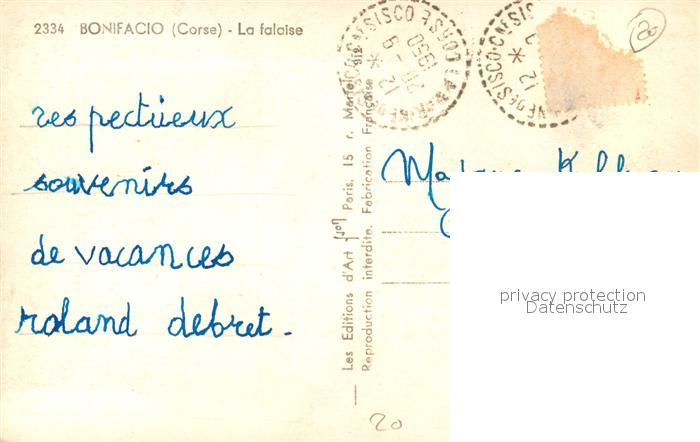 2334 BONIFACIO (Corse) - La falaise
respectueux
souvenirs
de vacances
roland debret.
Les Editions d'Art Paris, 15 r. Martel
Reproduction interdite. Fabrication Française
12 *
20 - 9
1950
CORSE
SISCO
12 *
SISCO
20
20
privacy protection
Datenschutz